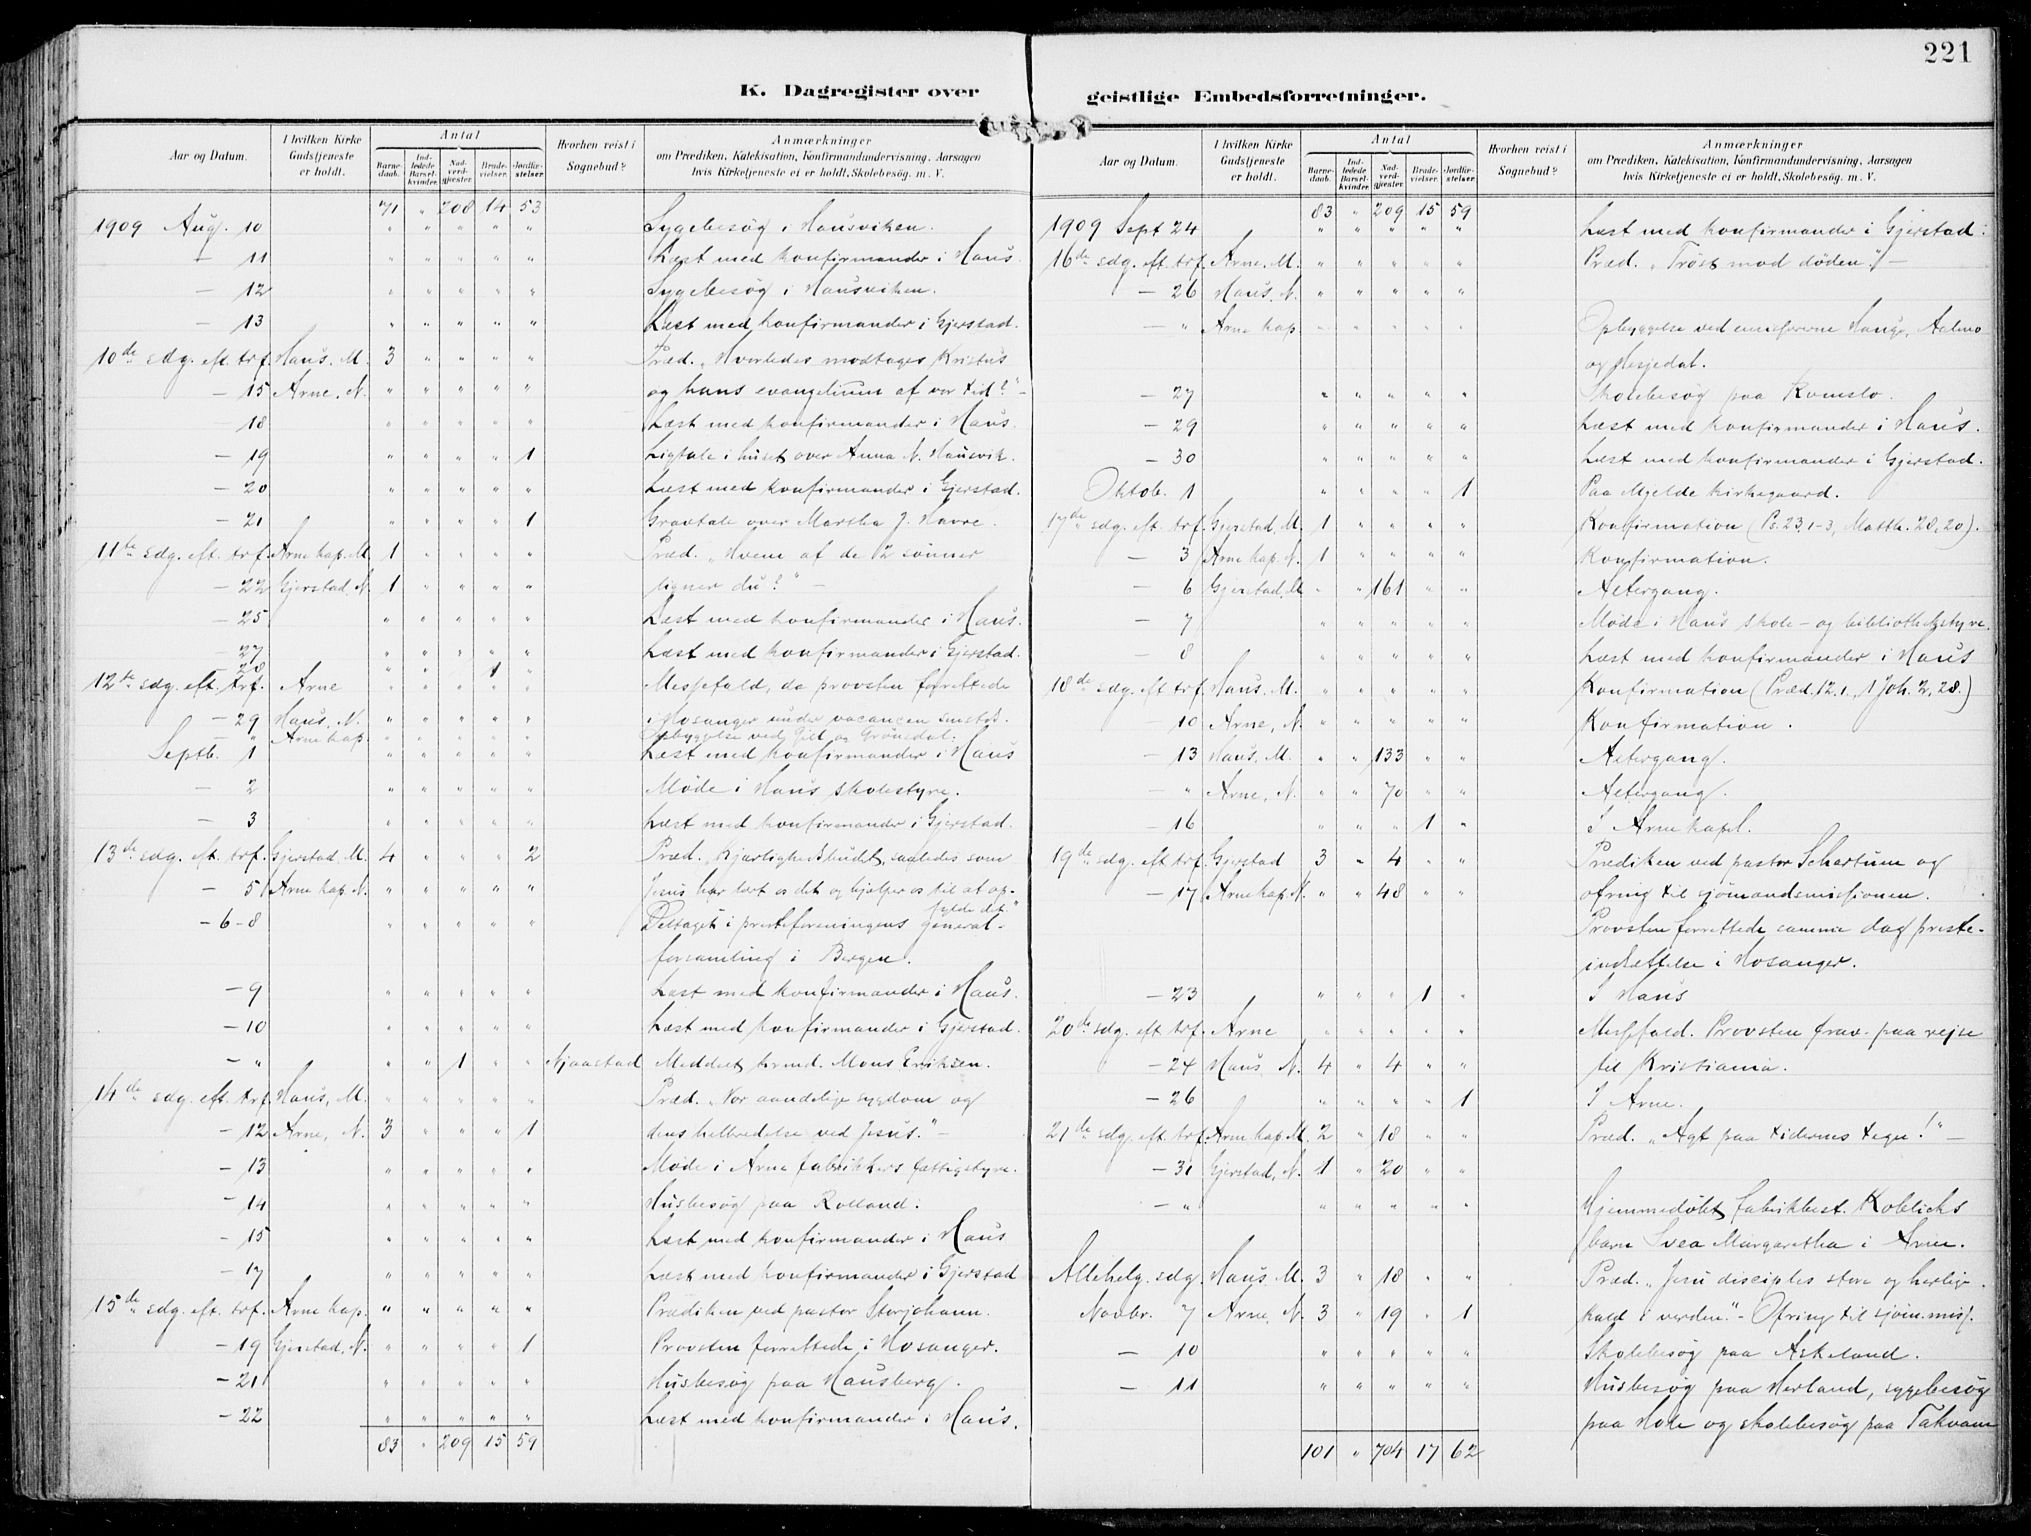 221
K. Dagregister over
Aar og Datum.
I hvilken Kirke Gudstjeneste er holdt.
Antal
Barnedaab.
Indledede Barselkvinder.
Nadverdgjester.
Brudevielser.
Jordfæstelser.
Hvorhen reist i Sognebud?
Anmærkninger
om Prædiken, Katekisation, Konfirmandundervisning, Aarsagen
hvis Kirketjeneste ei er holdt, Skolebesøg. m. V.
71 " 208 14 53
1909 Aug. 10 " " " " " Sygebesøg i Hausviken.
- 11 " " " " " Læst med konfirmander i Haus.
- 12 " " " " " Sygebesøg i Hausviken.
- 13 " " " " " Læst med konfirmander i Gjerstad.
10de sdg. eft. trf. Haus. M. 3 " " " " Præd. "Hvorledes modtages Kristus
- 15 Arne. N. " " " " " og hans evangelium af vor tid?" -
- 18 " " " " " Læst med konfirmander i Haus.
- 19 " " " " 1 Ligtale i huset over Anna N. Hausvik.
- 20 " " " " " Læst med konfirmander i Gjerstad.
- 21 " " " " 1 Gravtale over Martha J. Havre.
11te sdg. eft. trf. Arne kap. M. 1 " " " " Præd. "Hvem af de 2 sønner
- 22 Gjerstad, N. 1 " " " " ligner du?" -
- 25 " " " " " Læst med konfirmander i Haus.
- 27 " " " " " Læst med konfirmander i Gjerstad.
- 28 " " " 1 "
12te sdg. eft. trf. Arne " " " " " Messefald, da provsten forrettede
- 29 Haus, N. " " " " " i Hosanger under vacancen sinsteds.
- " Arne kap. " " " " " Opbyggelse ved Gilt og Grönsdal.
Septb. 1 " " " " " Læst med konfirmander i Haus
- 2 " " " " " Møde i Haus skolestyre.
- 3 " " " " " Læst med konfirmander i Gjerstad.
13de sdg. eft. trf. Gjerstad, M. 4 " " " 2 Præd. "Kjærlighedsbudet, saaledes som
- 5 Arne kap. N. " " " " " Jesus har lært os det og hjælper os til at op-
fylde det."
- 6-8 " " " " " Deltaget i presteforeningens general-
forsamling i Bergen.
- 9 " " " " " Læst med konfirmander i Haus.
- 10 " " " " " Læst med konfirmander i Gjerstad.
- " " " 1 " " Njaastad Meddelt formd. Mons Eriksen.
14de sdg. eft. trf. Haus, M. " " " " " Præd. "Vor aandelige sygdom og
- 12 Arne, N. 3 " " " 1 dens helbredelse ved Jesus." -
- 13 " " " " " Møde i Arne fabrikkers fattigstyre.
- 14 " " " " " Husbesøg paa Rolland.
- 15 " " " " " Læst med konfirmander i Haus
- 17 " " " " " Læst med konfirmander i Gjerstad
15de sdg. eft. trf. Arne kap. " " " " " Prædiken ved pastor Storjohann.
- 19 Gjerstad, N. " " " " 1 Provsten forrettede i Hosanger.
- 21 " " " " " Husbesøg paa Hausberg.
- 22 " " " " " Læst med konfirmander i Haus.
83 " 209 15 59
geistlige Embedsforretninger.
Aar og Datum.
I hvilken Kirke Gudstjeneste er holdt.
Antal
Barnedaab.
Indledede Barselkvinder.
Nadverdgjester.
Brudevielser.
Jordfæstelser.
Hvorhen reist i Sognebud?
Anmærkninger
om Prædiken, Katekisation, Konfirmandundervisning, Aarsagen
hvis Kirketjeneste ei er holdt, Skolebesøg. m. V.
83 " 209 15 59
1909 Sept 24 " " " " " Læst med konfirmander i Gjerstad.
16de sdg. eft. trf. Arne, M. " " " " " Præd. "Trøst mod døden." -
- 26 Haus, N. " " " " "
- " Arne kap. " " " " " Opbyggelse ved emissærerne Hauge, Aalmo
og Hesjedal.
- 27 " " " " " Skolebesøg paa Romslo.
- 29 " " " " " Læst med konfirmander i Haus.
- 30 " " " " " Læst med konfirmander i Gjerstad.
Oktob. 1 " " " " 1 Paa Mjelde kirkegaard.
17de sdg. eft. trf. Gjerstad, M. 1 " " " " Konfirmation (Ps. 23, 1-3, Matth. 28, 20).
- 3 Arne kap. N. 1 " " " " Konfirmation.
- 6 Gjerstad, M " " 161 " " Altergang.
- 7 " " " " " Møde i Haus skole- og bibliothekstyre.
- 8 " " " " " Læst med konfirmander i Haus
18de sdg. eft trf. Haus. M. " " " " " Konfirmation (Præd. 12, 1., 1 Joh. 2, 28.)
- 10 Arne, N. " " " " " Konfirmation.
- 13 Haus, M. " " 133 " " Altergang.
- " Arne, N. " " 70 " " Altergang.
- 16 " " " 1 " I Arne kapel.
19de sdg. eft trf. Gjerstad 3 " 4 " " Prædiken ved pastor Schartum og
- 17 Arne kap. N. " " 48 " " ofring til sjømandsmissionen.
Provsten forrettede samme dag preste-
indsættelse i Hosanger.
- 23 " " " 1 " I Haus
20de sdg. eft. trf. Arne " " " " " Messefald. Provsten frav. paa rejse
- 24 Haus, N. 4 " 4 " " til Kristiania.
- 26 " " " " 1 I Arne.
21de sdg. eft. trf. Arne kap. M. 2 " 18 " " Præd. "Agt paa tidernes tegn!" -
- 31 Gjerstad, N. 1 " 20 " "
- " " " " " " Hjemmedøbt fabrikbest. Koblichs
barn Svea Margaretha i Arne.
Allehelg. sdg. Haus. M. 3 " 18 " " Præd. "Jesu disciples store og herlige
Novbr. 7 Arne, N. 3 " 19 " 1 kald i verden." - Ofring til sjøm.miss.
- 10 " " " " " Skolebesøg paa Askeland.
- 11 " " " " " Husbesøg paa Herland, sygebesøg
paa Hole og skolebesøg paa Takvam
101 " 704 17 62